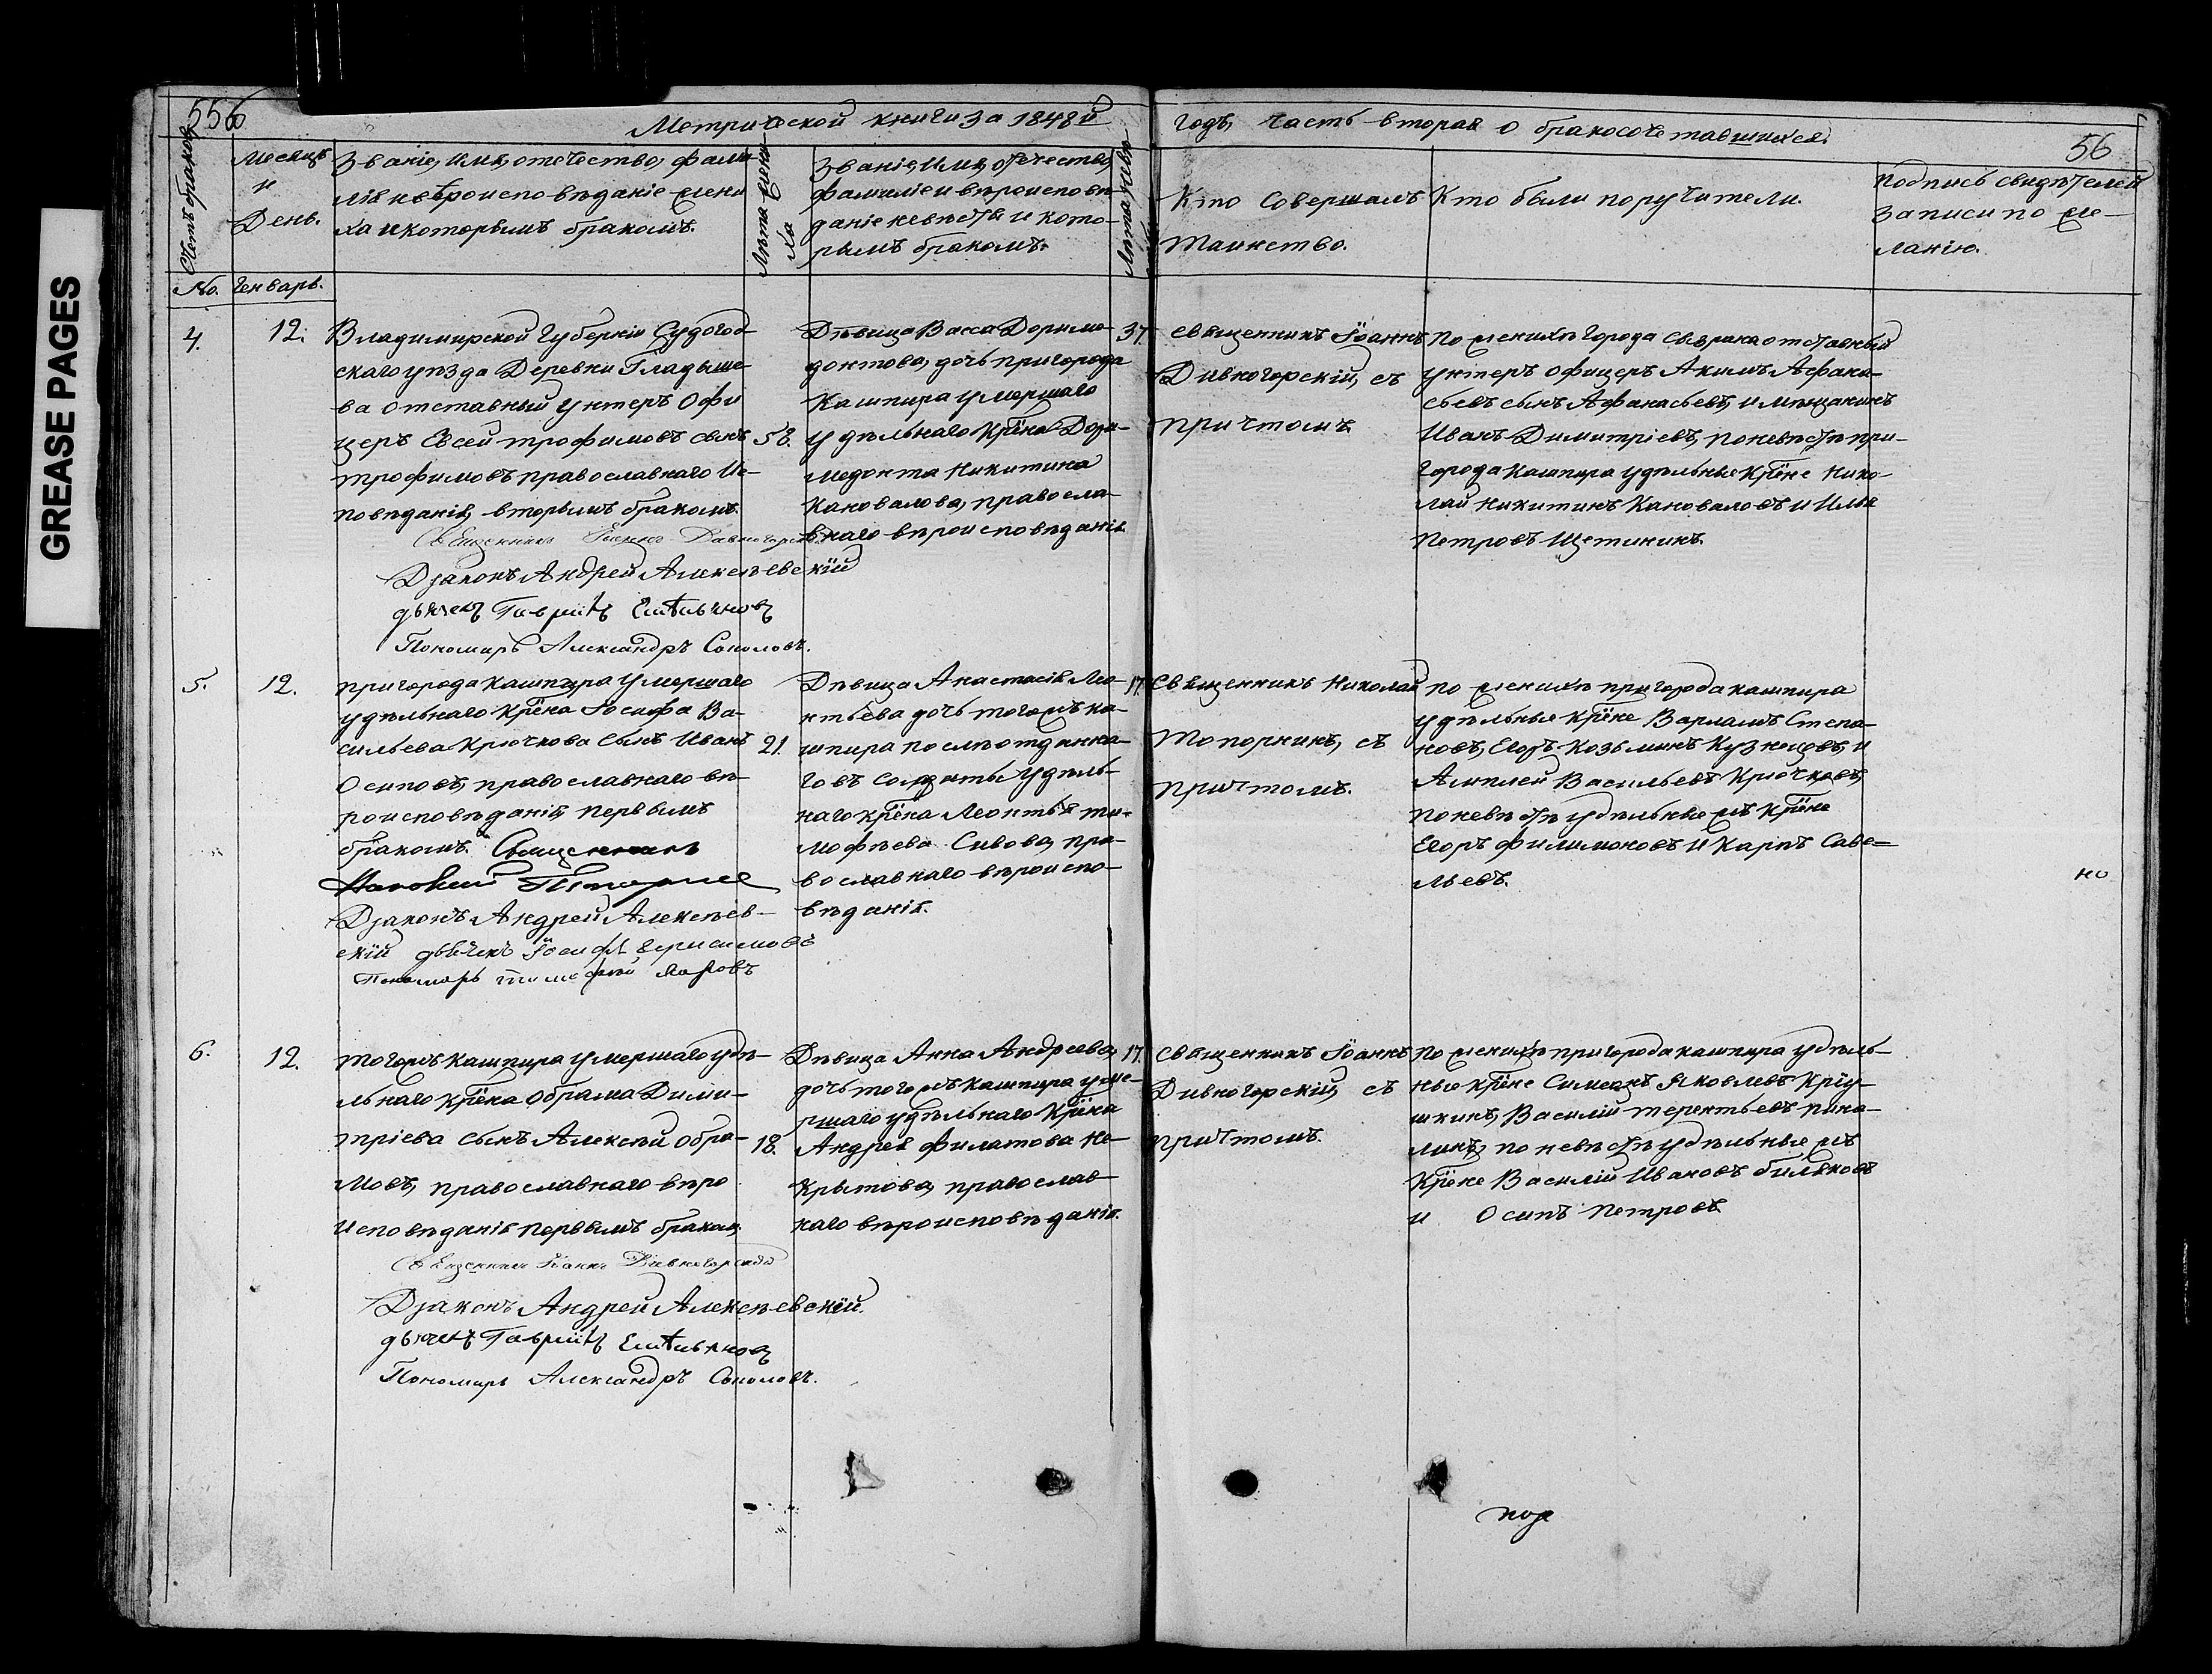 GREASE PAGES
556
Метрической книги за 1848й
годъ, часть вторая о бракосочетавшихся.
56
Счетъ браковъ
Месяцъ
и
День.
Званіе, имя, отечество, фами-
лія и вѣроисповѣданіе жени
ха и которымъ бракомъ.
Лѣта жени-
ха
Званіе, имя, отечество,
фамилія и вѣроисповѣ-
даніе невѣсты и кото-
рымъ бракомъ.
Лѣта невѣ
Кто совершалъ
Таинство.
Кто были поручители.
Подпись свидѣтелей
записи по же-
ланію.
No. Генварь.
4.
12.
Владимирской Губерніи Судогод
скаго уѣзда Деревни Гладыше-
ва отставный Унтеръ Офи
церъ Евсей трофимовъ сынъ
трофимовъ православнаго Ис-
повѣданія, вторымъ бракомъ.
Священникъ Іоаннъ Дивногорскій
Діаконъ Андрей Алексѣевскій
дьячекъ Гавріилъ Емѣльяновъ
Пономарь Александръ Соколовъ.
58.
Дѣвица Васса Дориме-
донтова, дочь пригорода
Кашпира умершаго
удѣльнаго Крѣна Дори-
медонта Никитина
Кановалова, правосла-
внаго вѣроисповѣданія.
37.
священникъ Іоаннъ
Дивногорскій, съ
причтомъ.
По женихѣ города Сызрана отставный
унтеръ офицеръ Акимъ Афана-
сьевъ сынъ Афанасьевъ, и мѣщанинъ
Иванъ Димитріевъ, по невѣстѣ при-
города Кашпира удѣльные Крѣне Нико-
лай Никитинъ Кановаловъ и Илья
Петровъ Щетининъ.
5.
12.
пригорода кашпира умершаго
удѣльнаго крѣна Іосифа Ва-
сильева Крючкова сынъ Иванъ
Осиповъ, православнаго вѣ-
роисповѣданія, первымъ
бракомъ. Священникъ
Николай Топорнинъ
Діаконъ Андрей Алексѣев-
скій дьячекъ Іосифъ Герисимовъ
Пономарь тимофей
21.
Дѣвица Анастасія Лео-
нтьева дочь тогожъ ка-
шпира послѣ отданна-
го въ солдаты удѣль-
наго крѣна Леонтья ти-
мофѣева Сивова, пра-
вославнаго вѣроиспо-
вѣданія.
17.
Священникъ Николай
Топорнинъ, съ
причтомъ.
по женихѣ пригорода кашпира
удѣльные крѣне Варламъ Степа-
новъ, Егоръ Козьминъ Кузнецовъ, и
Амплей Васильевъ Крючковъ,
по невѣстѣ удѣльные жъ крѣне
Егоръ Филимоновъ и Карпъ Саве-
льевъ.
но
6.
12.
тогожъ кашпира умершаго удѣ-
льнаго крѣна Обрама Дими-
тріева сынъ Алексѣй Обра-
мовъ, православнаго вѣро
исповѣданія первымъ бракомъ,
Священникъ Іоаннъ Дивногорскій
Діаконъ Андрей Алексѣевскій.
дьячекъ Гавріилъ Емѣльяновъ
Пономарь Александръ Соколовъ.
18.
Дѣвица Анна Андреева,
дочь тогожъ кашпира уме-
ршаго удѣльнаго Крѣна
Андрея Филатова Не-
крытова, православ-
наго вѣроисповѣданія.
17.
священникъ Іоаннъ
Дивногорскій, съ
причтомъ.
По женихѣ пригорода кашпира удѣль-
ные крѣне Симеонъ Яковлевъ Крѣу-
шкинъ, Василій терентьевъ пина-
линъ, по невѣстѣ удѣльные жъ
Крѣне Василій Ивановъ бильковъ
и Осипъ Петровъ.
пор